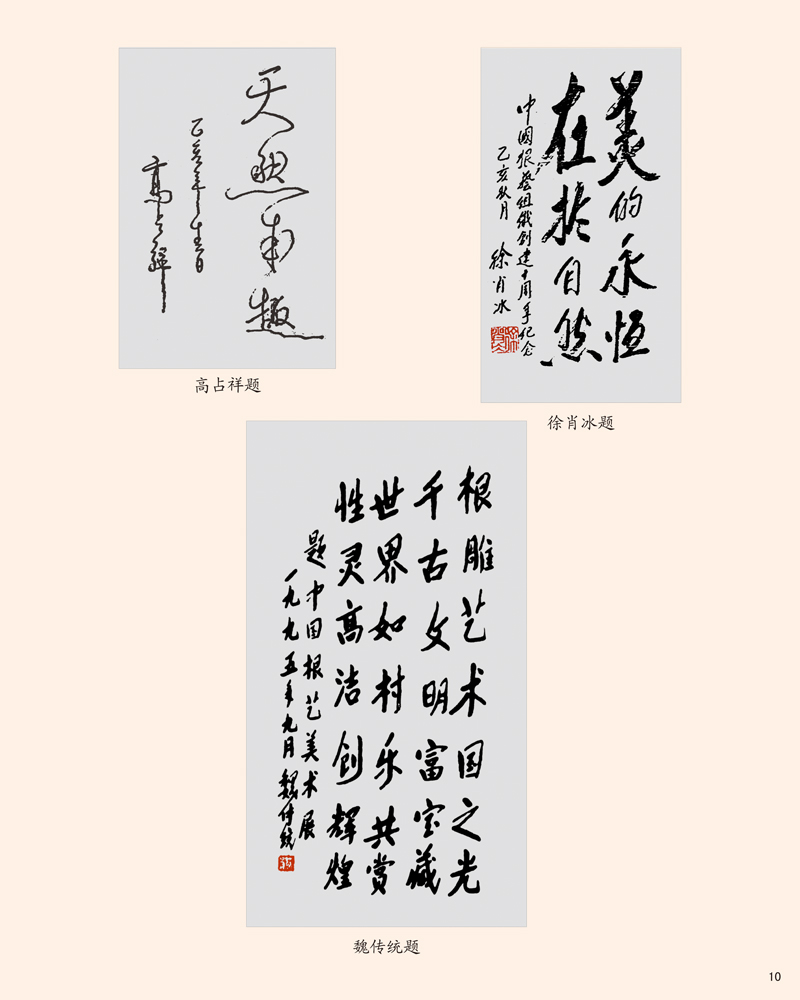 天然成趣
乙亥年生日
高占祥
高占祥题
美的永恒
在于自然
中國根艺組織創建十周年纪念
乙亥秋月 徐肖冰
徐肖冰题
根雕艺术国之光
千古文明富宝藏
世界如村乐共赏
性灵高洁创辉煌
题中国根艺美术展
一九九五年九月 魏传统
魏传统题
10